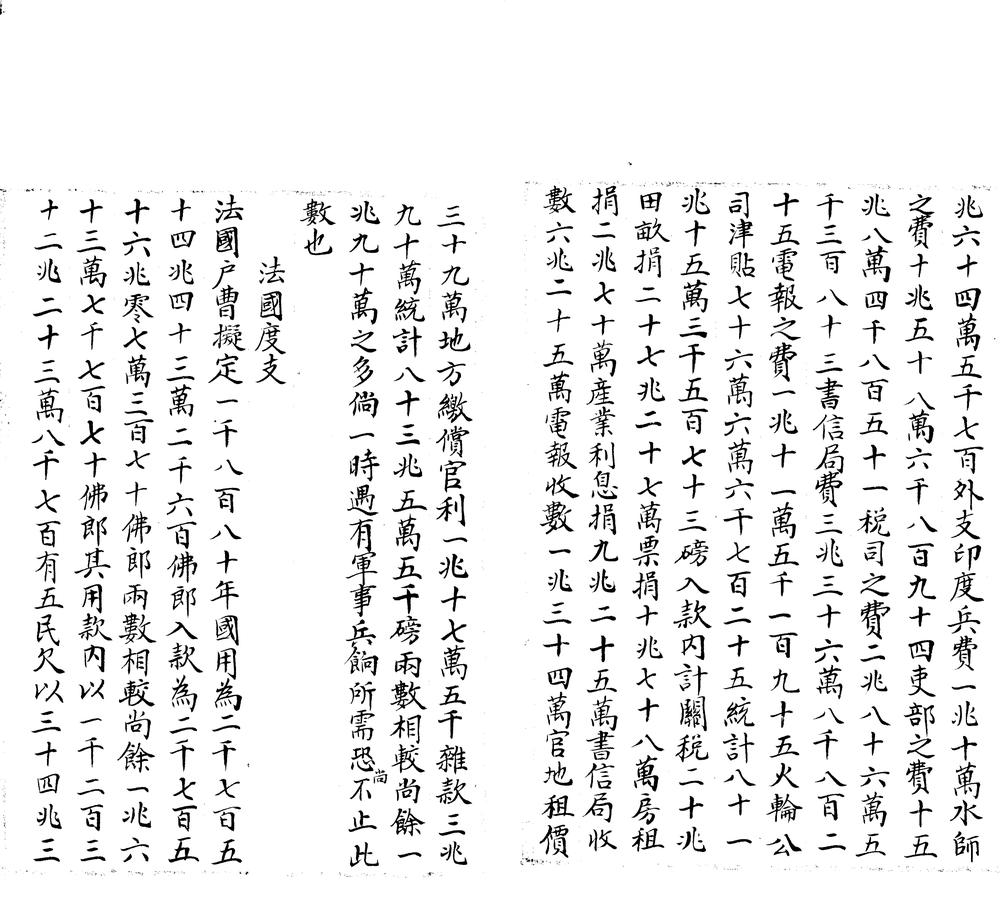 兆六十四萬五千七百外支印度兵費一兆十萬水師
之費十兆五十八萬六千八百九十四吏部之費十五
兆八萬四千八百五十一税司之費二兆八十六萬五
千三百八十三書信局費三兆三十六萬八千八百二
十五電報之費一兆十一萬五千一百九十五火輪公
司津貼七十六萬六萬六千七百二十五統計八十一
兆十五萬三千五百七十三磅入款内計關税二十兆
田畝捐二十七兆二十七萬票捐十兆七十八萬房租
捐二兆七十萬産業利息捐九兆二十五萬書信局收
數六兆二十五萬電報收數一兆三十四萬官地租價
三十九萬地方繳償官利一兆十七萬五千雜款三兆
九十萬統計八十三兆五萬五千磅兩數相較尚餘一
兆九十萬之多倘一時遇有軍事兵餉所需恐尚不止此
數也
法國度支
法國户曹擬定一千八百八十年國用為二千七百五
十四兆四十三萬二千六百佛郎入款為二千七百五
十六兆零七萬三百七十佛郎兩數相較尚餘一兆六
十三萬七千七百七十佛郎其用款内以一千二百三
十二兆二十三萬八千七百有五民欠以三十四兆三